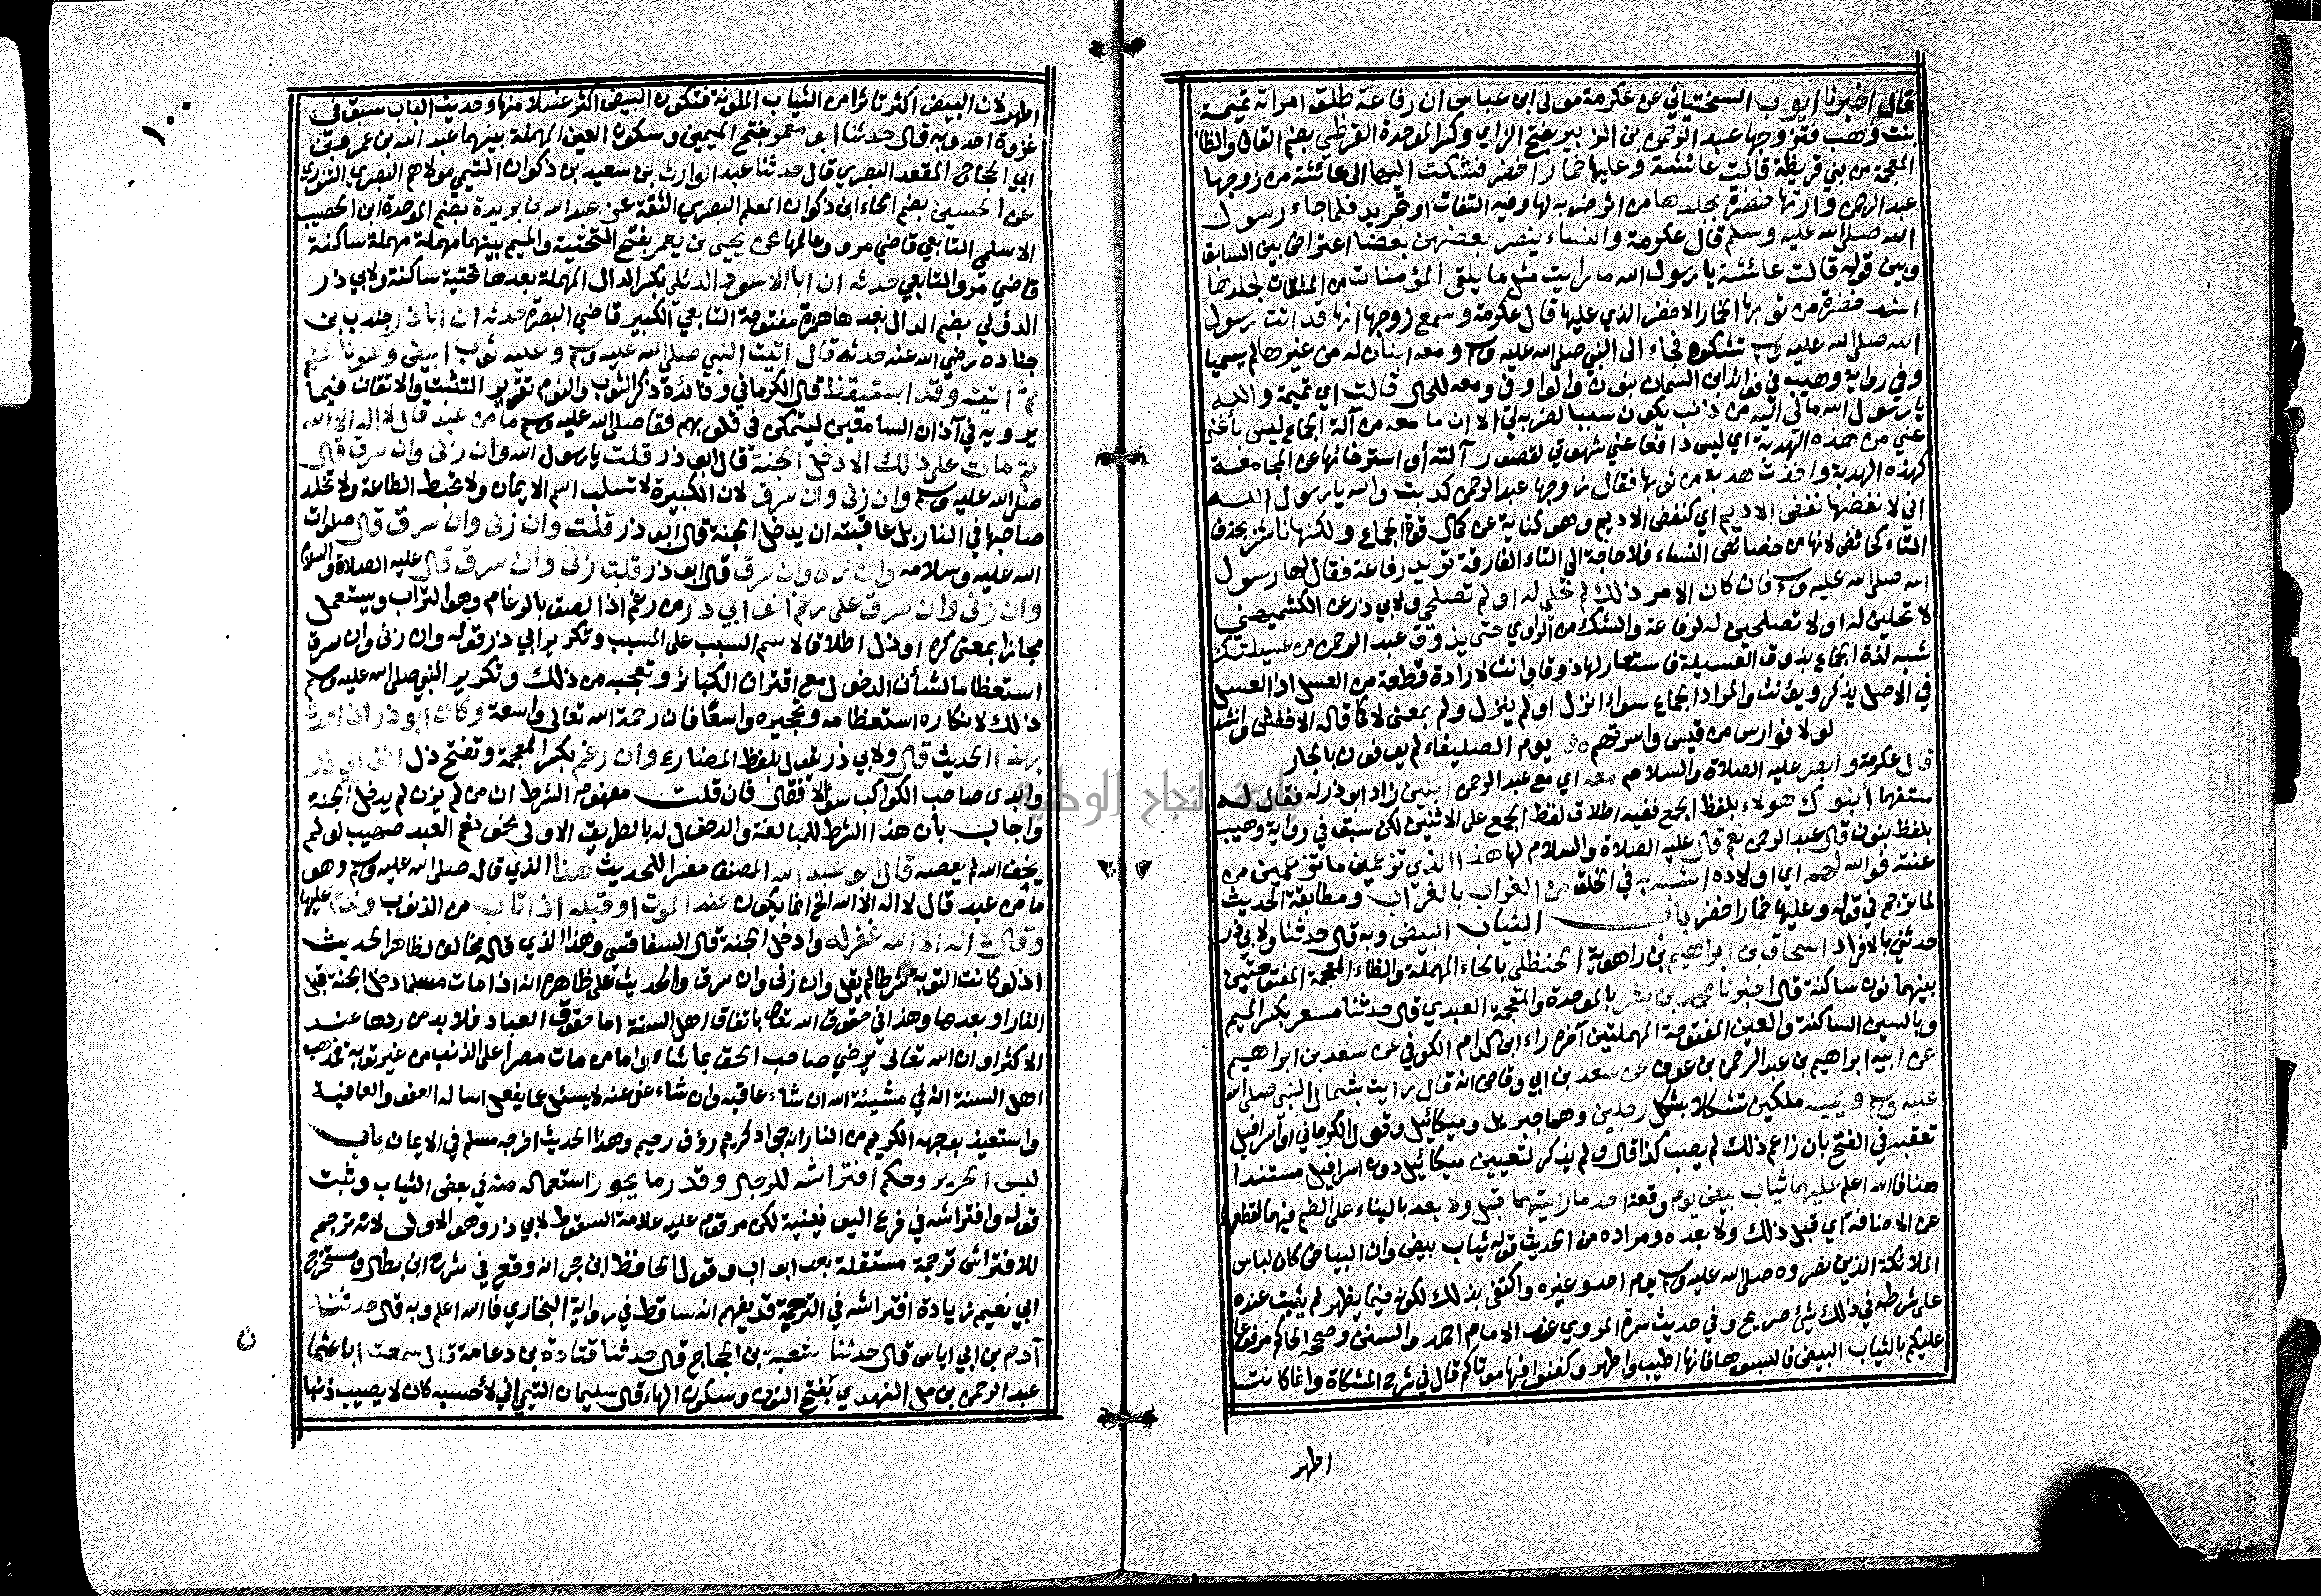 قال اخبرنا ايوب السختياني عن عكرمة مولى ابن عباس ان رفاعة طلق امراته تميمة
بنت وهب فتزوجها عبد الرحمن بن الزبير بفتح الزاي وكسر الموحدة القرظي بضم القاف والظا
المعجمة من بني قريظة قالت عائشة وعليها خمار اخضر فشكت اليها الى عائشة من زوجها
عبد الرحمن وارتها خضرة بجلدها من اثر ضربه لها وفيه التفات او تجريد فلما جاء رسول
الله صلى الله عليه وسلم قال عكرمة والنساء ينصر بعضهن بعضا اعتراض بين السابق
وبين قوله قالت عائشة يا رسول الله ما رايت مثل ما يلقى المؤمنات من المشقات لجلدها
اشد خضرة من ثوبها الخمار الاخضر الذي عليها قال عكرمة وسمع زوجها انها قد اتت رسول
الله صلى الله عليه وسلم تشكوه فجاء الى النبي صلى الله عليه وسلم ومعه ابنان له من غيرها لم يسميا
وفي رواية وهيب في فوائد ابن السماك بنون والواو في ومعه للحال قالت اي تميمة والله
يا رسول الله مالي اليه من ذنب يكون سببا لضربه لي الا ان ما معه من آلة الجماع ليس بأغنى
عني من هذه الهدبة اي ليس دافعا عني شهوتي لقصور آلته أو استرخائها عن المجامعة
كهذه الهدبة واخذت هدبة من ثوبها فقال زوجها عبد الرحمن كذبت والله يا رسول الله
اني لانفضها نفض الاديم اي كنفض الاديم وهو كناية عن كمال قوة الجماع ولكنها ناشز بحذف
التاء كحائض لانها من خصائص النساء فلا حاجة الى التاء الفارقة تريد رفاعة فقال لها رسول
الله صلى الله عليه وسلم فان كان الامر ذلك لم تحلي له او لم تصلحي ولابي ذر عن الكشميهني
لا تحلين له او لا تصلحين له لرفاعة والشك من الراوي حتى يذوق عبد الرحمن من عسيلتك
شبه لذة الجماع بذوق العسيلة فاستعار لها ذوقا وانث لارادة قطعة من العسل اذ العسل
في الاصل يذكر ويؤنث والمراد الجماع سواء انزل او لم ينزل ولم بمعنى لا كما قاله الاخفش وانشد
لولا فوارس من قيس واسرتهم يوم الصليفاء لم يوفون بالجار
قال عكرمة وابصر عليه الصلاة والسلام معه اي مع عبد الرحمن ابنين زاد ابو ذر له فقال له
مستفهما أبنوك هولاء بلفظ الجمع ففيه اطلاق لفظ الجمع على الاثنين لكن سبق في رواية وهيب
بلفظ بنون قال عبد الرحمن نعم قال عليه الصلاة والسلام لها هذا الذي تزعمين ما تزعمين من
عنته فوالله لهم اي اولاده اشبه به في الخلق من الغراب بالغراب ومطابقة الحديث
لما ترجم في قوله وعليها خمار اخضر باب الثياب البيض وبه قال حدثنا ولابي ذر
حدثني بالافراد اسحاق بن ابراهيم بن راهوية الحنظلي بالحاء المهملة والظاء المعجمة المفتوحتين
بينهما نون ساكنة قال اخبرنا محمد بن بشر بالموحدة والمعجمة العبدي قال حدثنا مسعر بكسر الميم
وبالسين الساكنة والعين المفتوحة المهملتين آخره راء ابن كدام الكوفي عن سعد بن ابراهيم
عن ابيه ابراهيم بن عبد الرحمن بن عوف عن سعد بن ابي وقاص انه قال رايت بشمال النبي صلى الله
عليه وسلم ويمينه ملكين تشكلا بشكل رجلين وهما جبريل وميكائيل وقول الكرماني او اسرافيل
تعقبه في الفتح بان زاعم ذلك لم يصب كذا قال ولم يذكر لتعيين ميكائيل دون اسرافيل مستندا
هنا فالله اعلم عليهما ثياب بيض يوم وقعة احد ما رايتهما قبل ولا بعد بالبناء على الضم فيهما لقطعهما
عن الاضافة اي قبل ذلك ولا بعده ومراده من الحديث قوله ثياب بيض وان البياض كان لباس
الملائكة الذين نصروه صلى الله عليه وسلم يوم احد وغيره واكتفى بذلك لكونه فيما يظهر لم يثبت عنده
على شرطه في ذلك شيئ صريح وفي حديث سمرة المروي عند الامام احمد والسنن وصححه الحاكم مرفوعا
عليكم بالثياب البيض فالبسوها فانها اطيب واطهر وكفنوا فيها موتاكم قال في شرح المشكاة وانما كانت
اطهر
١٠٠
اطهر لان البيض اكثر تاثرا من الثياب الملونة فتكون البيض اكثر غسلا منها وحديث الباب سبق في
غزوة احد وبه قال حدثنا ابو معمر بفتح الميمين وسكون العين المهملة بينهما عبد الله بن عمرو بن
ابي الحجاج المقعد البصري قال حدثنا عبد الوارث بن سعيد بن ذكوان التيمي مولاهم البصري التنوري
عن الحسين بضم الحاء ابن ذكوان المعلم البصري الثقة عن عبد الله بن بريدة بضم الموحدة ابن الحصيب
الاسلمي التابعي قاضي مرو وعالمها عن يحيى بن يعمر بفتح التحتية والميم بينهما مهملة ساكنة
قاضي مرو التابعي حدثه ان ابا الاسود الدئلي بكسر الدال المهملة بعدها تحتية ساكنة ولابي ذر
الدؤلي بضم الدال بعدها همزة مفتوحة التابعي الكبير قاضي البصرة حدثه ان ابا ذر جندب بن
جناده رضي الله عنه حدثه قال اتيت النبي صلى الله عليه وسلم وعليه ثوب ابيض وهو نائم
ثم اتيته وقد استيقظ قال الكرماني وفائدة ذكر الثوب والنوم تقرير التثبت والاتقان فيما
يرويه في آذان السامعين ليتمكن في قلوبهم فقال صلى الله عليه وسلم ما من عبد قال لا اله الا الله
ثم مات على ذلك الا دخل الجنة قال ابو ذر قلت يا رسول الله وان زنى وان سرق قال
صلى الله عليه وسلم وان زنى وان سرق لان الكبيرة لا تسلب اسم الايمان ولا تحبط الطاعة ولا تخلد
صاحبها في النار بل عاقبته ان يدخل الجنة قال ابو ذر قلت وان زنى وان سرق قال صلوات
الله عليه وسلامه وان زنى وان سرق قال ابو ذر قلت زنى وان سرق قال عليه الصلاة والسلام
وان زنى وان سرق على رغم انف ابي ذر من رغم اذا لصق بالرغام وهو التراب ويستعمل
مجازا بمعنى كره او ذل اطلاقا لاسم السبب على المسبب وتكرير ابي ذر قوله وان زنى وان سرق
استعظاما لشأن الدخول مع اقتران الكبائر وتعجبه من ذلك وتكرير النبي صلى الله عليه وسلم
ذلك لانكاره استعظامه وتحجيره واسعا فان رحمة الله تعالى واسعة وكان ابو ذر اذا حدث
بهذا الحديث قال ولابي ذر يقول بلفظ المضارع وان رغم بكسر المعجمة وتفتح ذل انف ابي ذر
وابدى صاحب الكواكب سؤالا فقال فان قلت مفهوم الشرط ان من لم يزن لم يدخل الجنة
واجاب بأن هذا الشرط للمبالغة والدخول له بالطريق الاولى نحو نعم العبد صهيب لو لم
يخف الله لم يعصه قال ابو عبد الله المصنف مفسرا للحديث هذا الذي قاله صلى الله عليه وسلم وهو
ما من عبد قال لا اله الا الله الخ انما يكون عند الموت او قبله اذا تاب من الذنوب وندم عليها
وقال لا اله الا الله غفر له وادخل الجنة قال السفاقسي وهذا الذي قاله مخالف لظاهر الحديث
اذ لو كانت التوبة شرطا لم يقل وان زنى وان سرق والحديث على ظاهره انه اذا مات مسلما دخل الجنة قبل
النار او بعدها وهذا في حقوق الله تعالى باتفاق اهل السنة اما حقوق العباد فلا بد من ردها عند
الاكثر او ان الله تعالى يرضي صاحب الحق بما شاء واما من مات مصرا على الذنب من غير توبة فمذهب
اهل السنة انه في مشيئة الله ان شاء عاقبه وان شاء عفى عنه لا يسئل عما يفعل اساله العفو والعافية
واستعيذ بوجهه الكريم من النار انه جواد كريم رؤف رحيم وهذا الحديث اخرجه مسلم في الايمان باب
لبس الحرير وحكم افتراشه للرجال وقدر ما يجوز استعماله منه في بعض الثياب وثبت
قوله وافتراشه في فرع اليونينية لكن مرقوم عليه علامة السقوط لابي ذر وهو الاولى لانه ترجم
للافتراش ترجمة مستقلة بعد ابواب وقول الحافظ ابن حجر انه وقع في شرح ابن بطال ومستخرج
ابي نعيم زيادة افتراشه في الترجمة قد يفهم انه ساقط في رواية البخاري فالله اعلم وبه قال حدثنا
آدم بن ابي اياس قال حدثنا شعبة بن الحجاج قال حدثنا قتادة بن دعامة قال سمعت ابا عثمان
عبد الرحمن بن مل النهدي بفتح النون وسكون الهاء قال سليمان التيمي اني لأحسبه كان لا يصيب ذنبا
ن